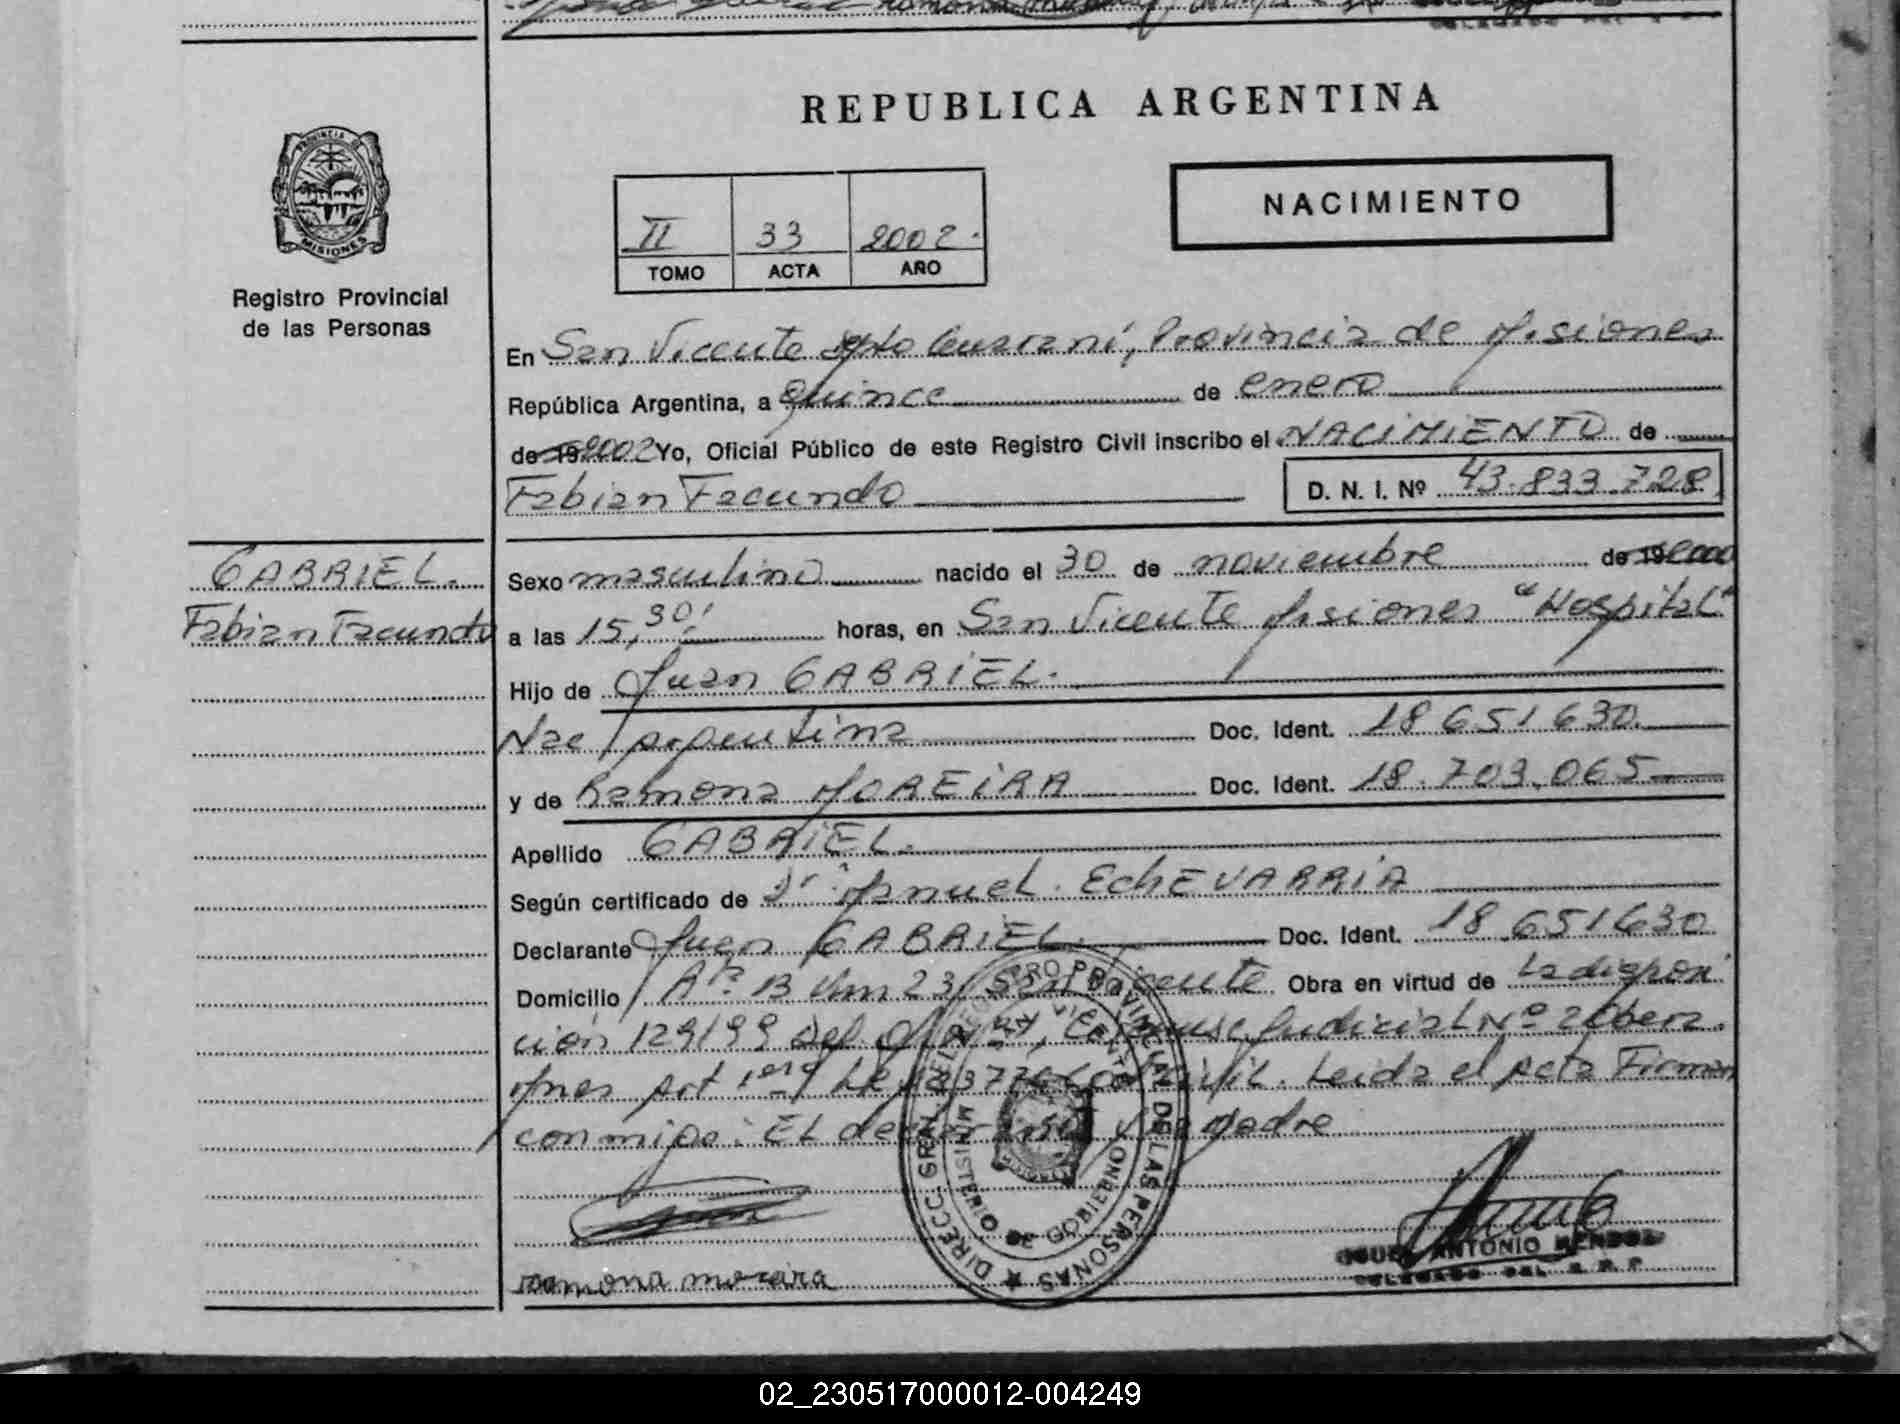 REPUBLICA ARGENTINA
PROVINCIA DE
MISIONES
Registro Provincial
de las Personas
II 33 2002.
TOMO ACTA AÑO
NACIMIENTO
En San Vicente Dpto Guaraní, Provincia de Misiones
República Argentina, a quince de enero
de 19 2002 Yo, Oficial Público de este Registro Civil inscribo el NACIMIENTO de
Fabian Facundo D. N. I. Nº 43.833.728
GABRIEL.
Fabian Facundo
Sexo masculino nacido el 30 de noviembre de 19
a las 15,30 horas, en San Vicente Misiones "Hospital"
Hijo de Juan GABRIEL.
Nac Argentina Doc. Ident. 18 651 630
y de Ramona MOREIRA Doc. Ident. 18.703.065
Apellido GABRIEL.
Según certificado de Dr. Manuel EChEVARRIA
Declarante Juan GABRIEL Doc. Ident. 18 651630
Domicilio 13 Km 23 San Vicente Obra en virtud de la disposi
ción 129/99 del Judicial Nº
Art Leida el Acta Firman
conmigo: EL declarante y la Madre
DIRECC. GRAL. DEL REGISTRO PROVINCIAL DE LAS PERSONAS
MINISTERIO DE GOBIERNO
SAN VICENTE
ramona moreira
ANTONIO MENDOZA
DELEGADO DEL R. P. P.
02_230517000012-004249